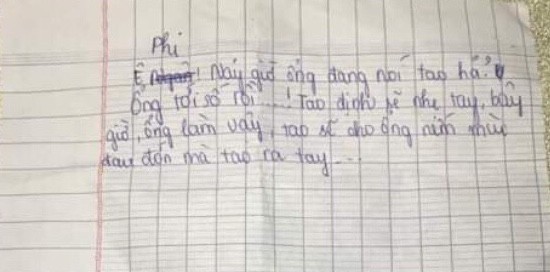 Phi
Ê ! Nãy giờ ông đang nói tao hả?
Ông tới số rồi....! Tao định sẽ nhẹ tay, bây
giờ, ông làm vậy, tao sẽ cho ông nếm mùi
đau đớn mà tao ra tay....